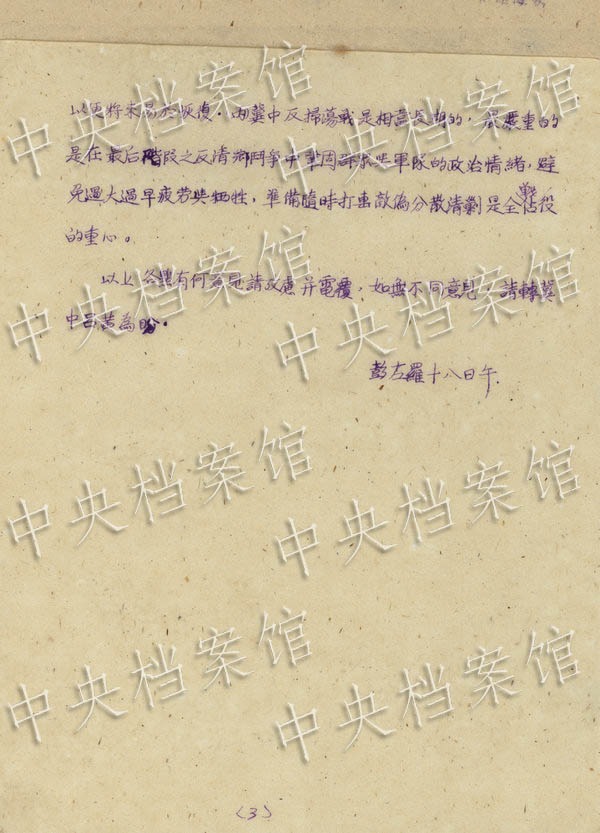 以便將来易於恢復。因冀中反掃蕩戰是相當長期的，最嚴重的
是在最后階段之反清鄉鬥爭中鞏固部隊與軍隊的政治情緒，避
免過大過早疲劳與牺牲，準備隨時打击敌偽分散清剿是全战役
的重心。
以上各點有何意見請攷慮并電覆，如無不同意見，請轉冀
中吕黄為盼。
彭左羅十八日午.
(3)
中央档案馆
中央档案馆
中央档案馆
中央档案馆
中央档案馆
中央档案馆
中央档案馆
中央档案馆